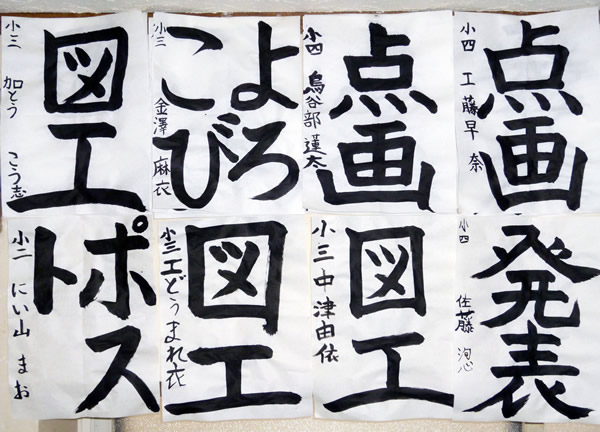 点画
小四 工藤早奈
点画
小四 鳥谷部蓮太
よろ
こび
小三 金澤 麻衣
図工
小三 加とう こう志
発表
小四 佐藤
図工
小三 中津由依
図工
小三 工どうまれ衣
ポス
ト
小二 にい山 まお